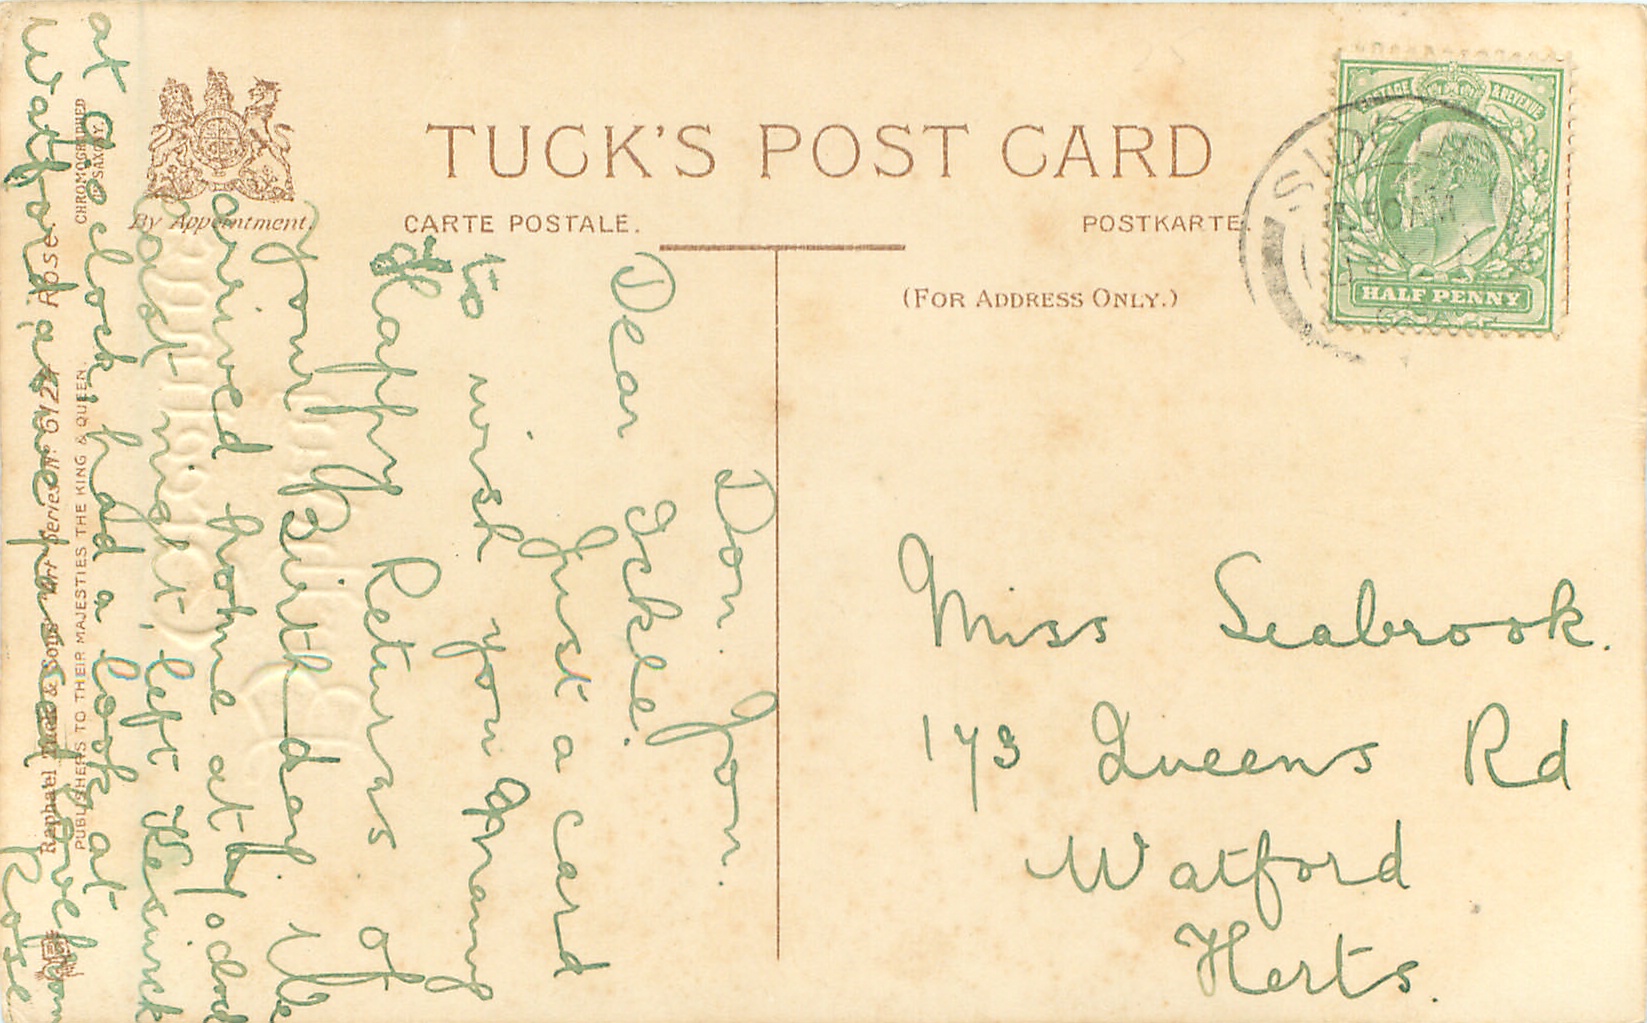 TUCK'S POST CARD
By Appointment.
CARTE POSTALE.
POSTKARTE.
(FOR ADDRESS ONLY.)
POSTAGE & REVENUE
HALF PENNY
CHROMOGRAPHED
SAXONY.
Raphael Tuck & Sons "Art" Series Nº 6124 ROSE
PUBLISHERS TO THEIR MAJESTIES THE KING & QUEEN.
Miss Seabrook.
173 Queens Rd
Watford
Herts.
Don. Jon.
Dear Ickle.
Just a card
to wish you Many
Happy Returns of
your Birthday. We
arrived home at
last night, left Keswick
at o'clock, had a look at
Watford as we passed
Rose